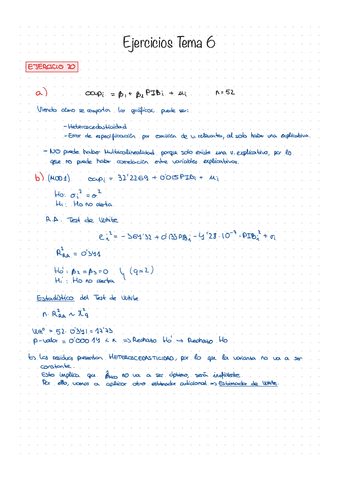 Ejercicios Tema 6
EJERCICIO 20
a) ocupi = β1 + β2 PIBi + ui n = 52
Viendo cómo se comportan los gráficos puede ser:
- Heterocedasticidad
- Error de especificación por omisión de v. relevantes, al solo haber una explicativa.
- NO puede haber Multicolinealidad porque solo existe una v. explicativa, por lo
que no puede haber correlación entre variables explicativas.
b) (MOD1) ocupi = 32'2269 + 0'005PIBi + ui
Ho: σi² = σ²
H1: Ho no cierta
R.A. Test de White
Ho': β2 = β3 = 0 (q=2)
H1: Ho no cierta
Estadístico del Test de White
p-valor = 0'00014 < α ⇒ Rechazo Ho' → Rechazo Ho
Los residuos presentan HETEROCEDASTICIDAD, por lo que la varianza no va a ser
constante.
Esto implica que no va a ser óptimo, será ineficiente.
Por ello, vamos a aplicar otro estimador adicional ⇒ Estimador de White.